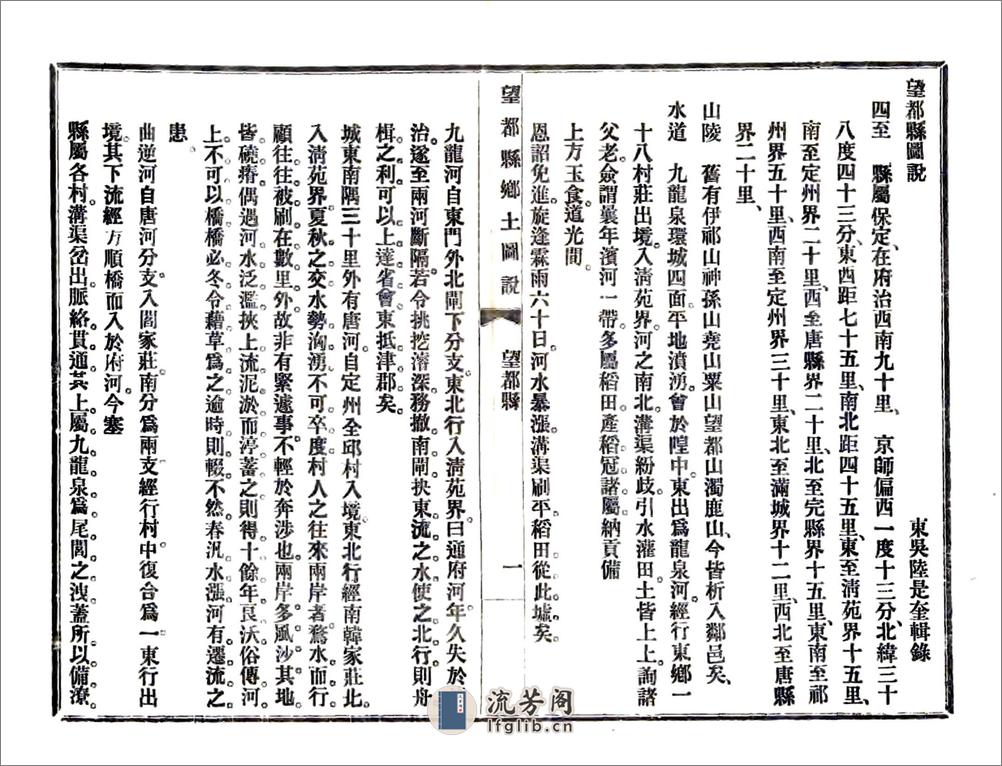 望都縣圖說
東吳陸是奎輯錄
四至　縣屬保定、在府治西南九十里、　京師偏西一度十三分、北緯三十
八度四十三分、東西距七十五里、南北距四十五里、東至淸苑界十五里、
南至定州界二十里、西至唐縣界二十里、北至完縣界十五里、東南至祁
州界五十里、西南至定州界三十里、東北至滿城界十二里、西北至唐縣
界二十里、
山陵　舊有伊祁山神孫山堯山粟山望都山濁鹿山、今皆析入鄰邑矣、
水道　九龍泉環城四面、平地濆湧。會於隍中。東出爲龍泉河。經行東鄉一
十八村莊出境。入淸苑界。河之南北溝渠紛歧。引水灌田。土皆上上。詢諸
父老。僉謂曩年濱河一帶。多屬稻田。產稻冠諸屬。納貢備
上方玉食。道光間。
恩詔免進。旋逢霖雨六十日。河水暴漲。溝渠刷平。稻田從此墟矣。
望都縣鄉土圖說
望都縣
一
九龍河自東門外北閘下分支。東北行入淸苑界。曰通府河。年久失於
治。遂至兩河斷隔。若令挑挖濬深。務撤南閘。抉東流之水使之北行。則舟
楫之利。可以上達省會。東抵津郡矣。
城東南隅三十里外有唐河。自定州全邱村入境。東北行經南韓家莊。北
入淸苑界。夏秋之交。水勢洶湧。不可卒度。村人之往來兩岸者。騖水而行。
顧往往被刷在數里外。故非有緊遽事。不輕於奔涉也。兩岸多風沙。其地
皆磽瘠。偶遇河水泛濫。挾上流泥淤而渟蓄之。則得十餘年良沃。俗傳河
上不可以橋。橋必冬令藉草爲之。逾時則輟。不然。春汛水漲。河有遷流之
患。
曲逆河自唐河分支入閻家莊。南分爲兩支。經行村中。復合爲一。東行出
境。其下流經方順橋而入於府河。今塞
縣屬各村溝渠岔出。脈絡貫通。其上屬九龍泉爲尾閭之洩。蓋所以備潦。
流芳阁
lfglib.cn